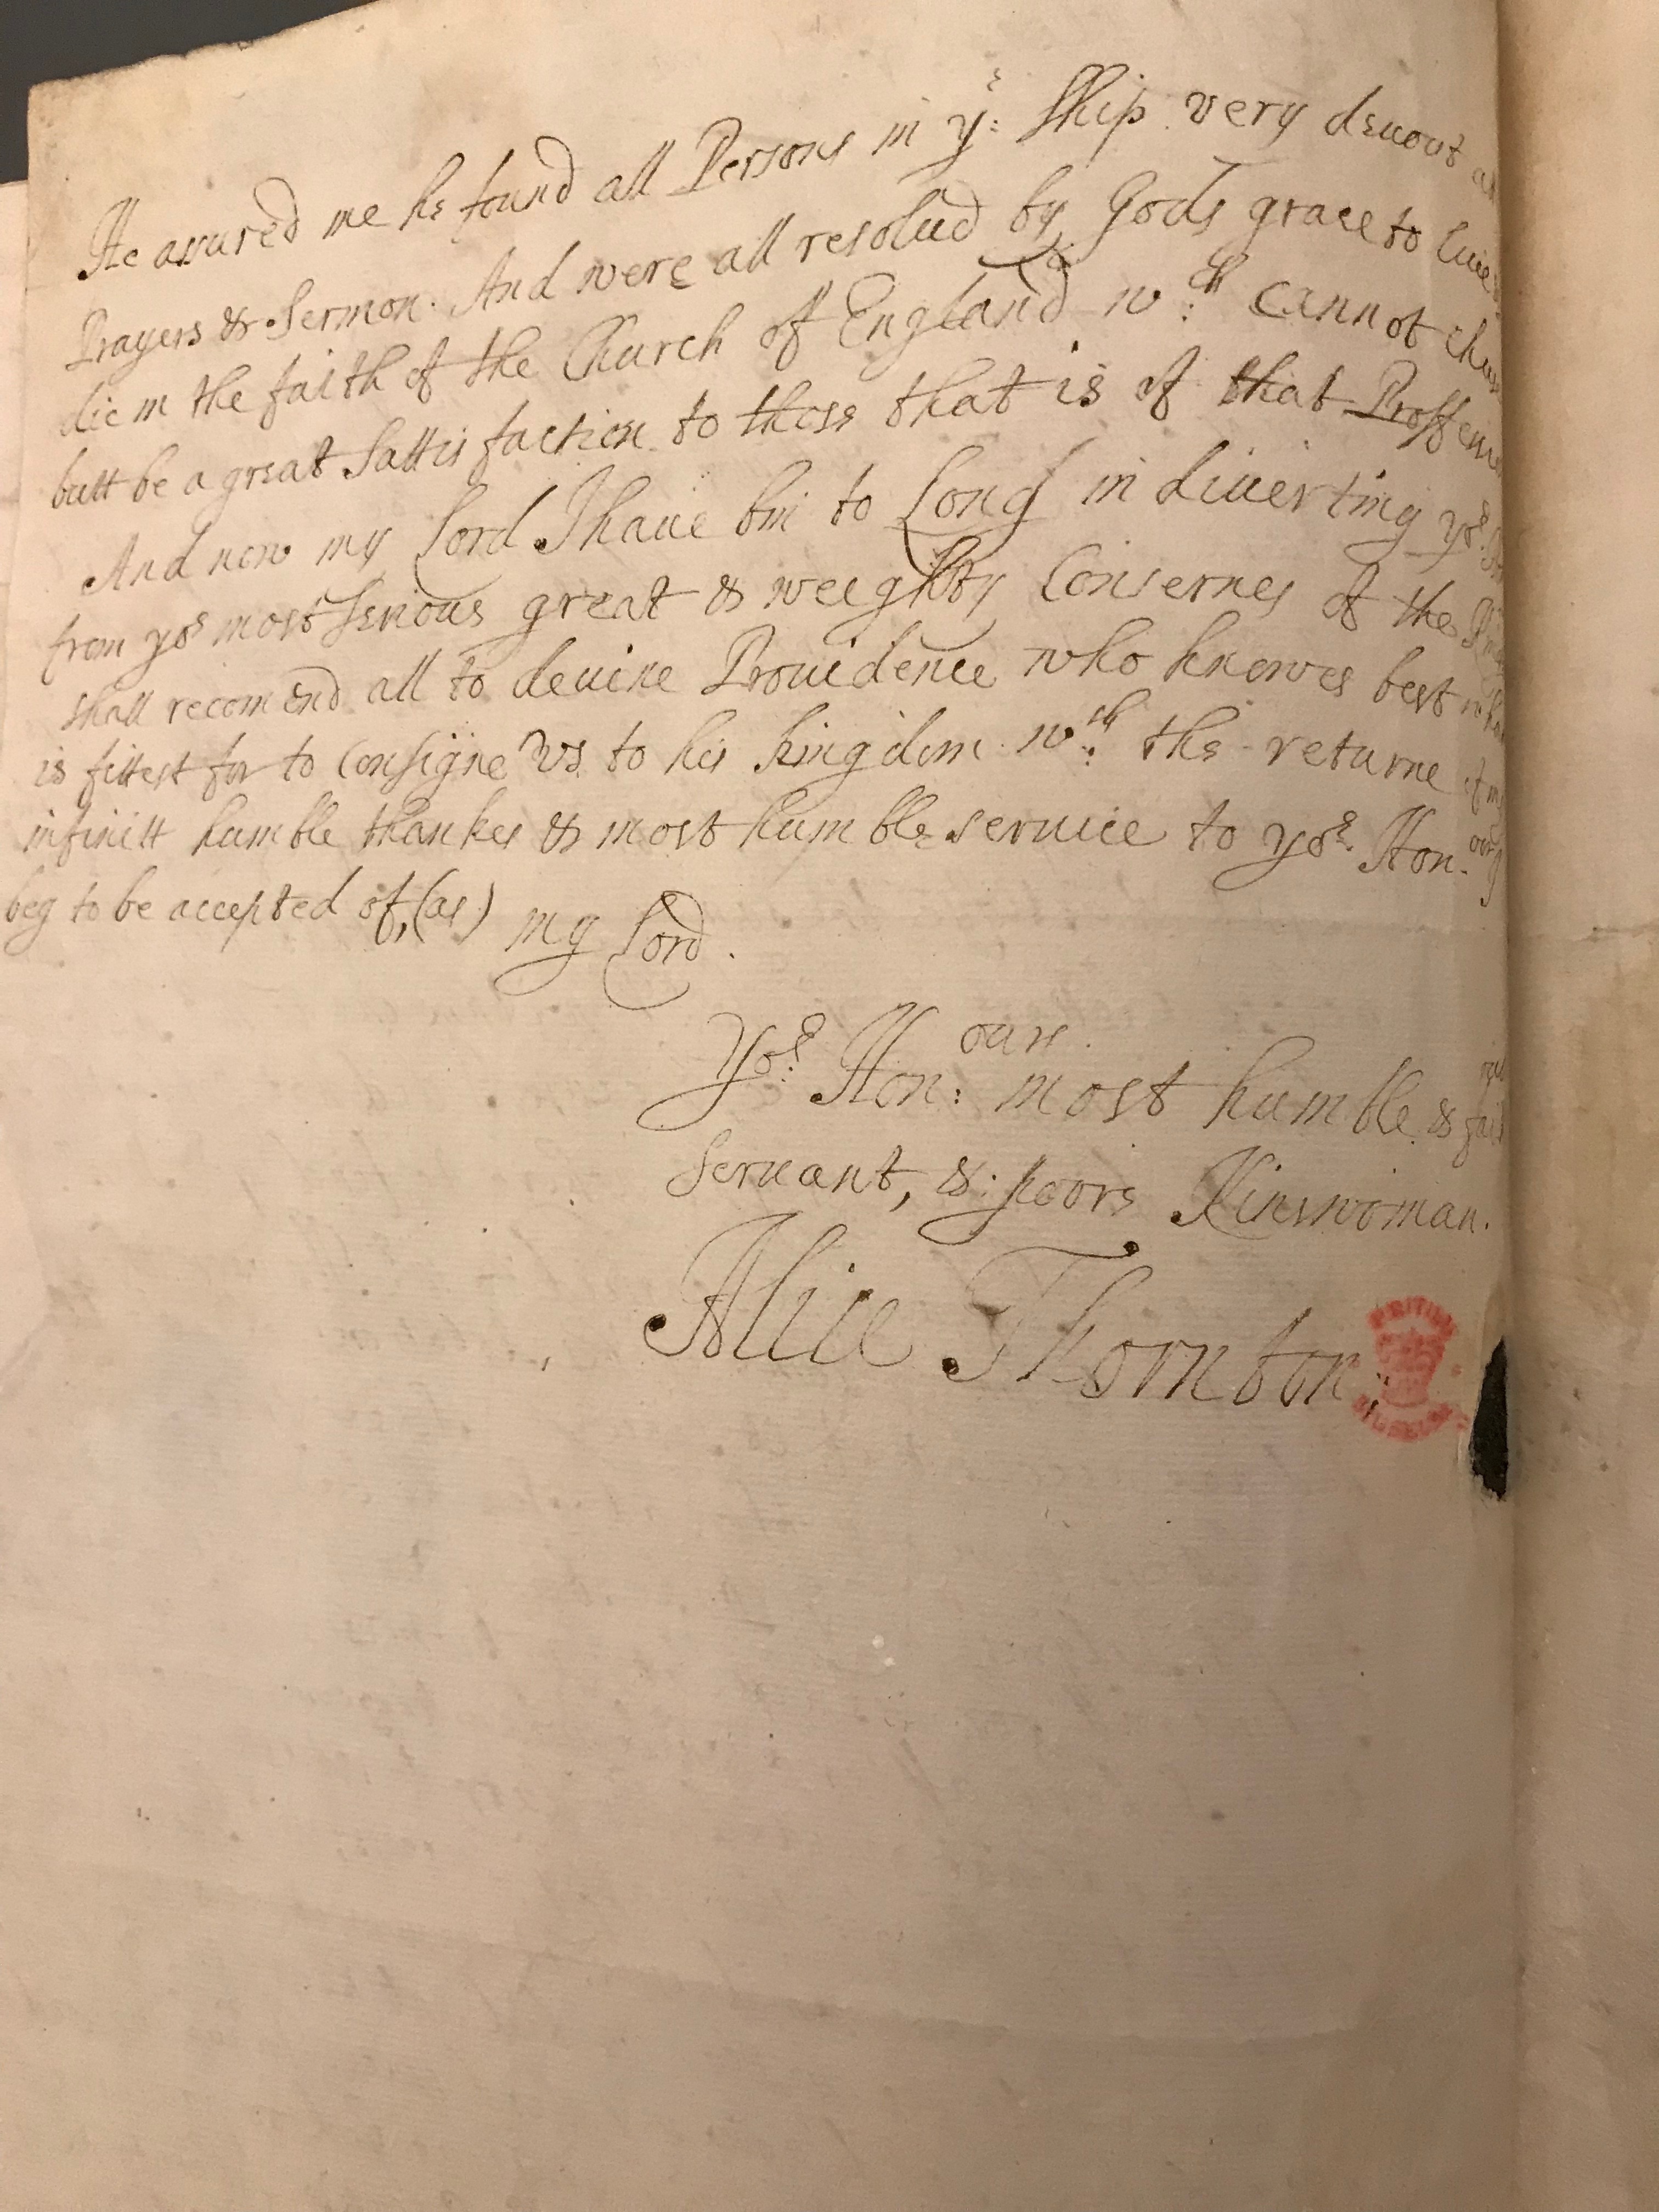 He assured me he found all Persons in ye: Ship very devout
Prayers & Sermon. And were all resolued by Gods grace to liue
die in the faith of the Church of England wch: cannot
butt be a great Sattisfaction to those that is of that
And now my Lord I haue bin to Long in diuerting yor.
from yor most serious great & weeghty Consernes of the
shall recomend all to deuine Prouidence who knowes best
is fittest for to Consigne Vs. to his kingdom. wth: the returne of
infinitt humble thankes & most humble seruice to yor. Hon.
beg to be accepted of, (as) my Lord.
Yor: Hon:ours. most humble &
Seruant, &: poore Kinswoman.
Alice Thornton;
BRITISH
MUSEUM